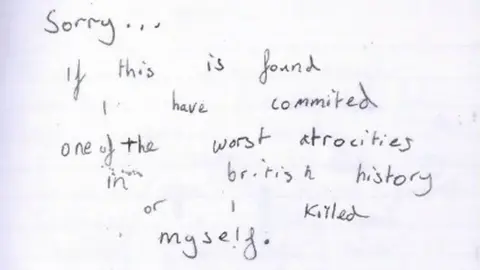 Sorry...
If this is found
I have commited
one of the worst atrocities
in british history
or i killed
myself.